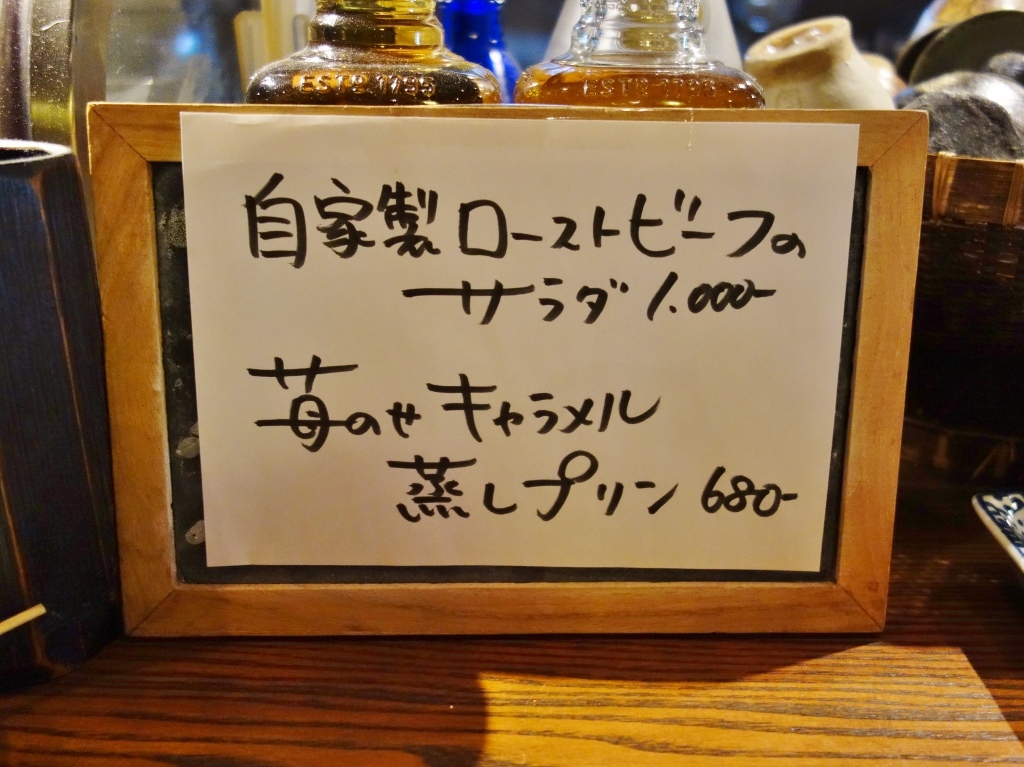 ESTD 1795
ESTD 1795
自家製ローストビーフの
サラダ 1.000-
苺のせキャラメル
蒸しプリン 680-